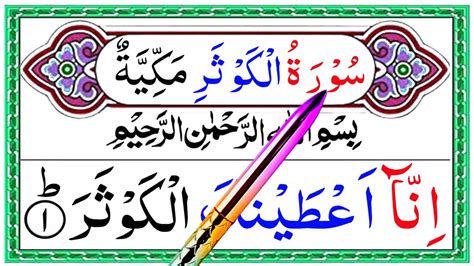 سُوْرَةُ الْكَوْثَرِ مَكِّيَّةٌ
بِسْمِ اللّٰهِ الرَّحْمٰنِ الرَّحِيْمِ
اِنَّاۤ اَعْطَيْنٰكَ الْكَوْثَرَ ؕ ١